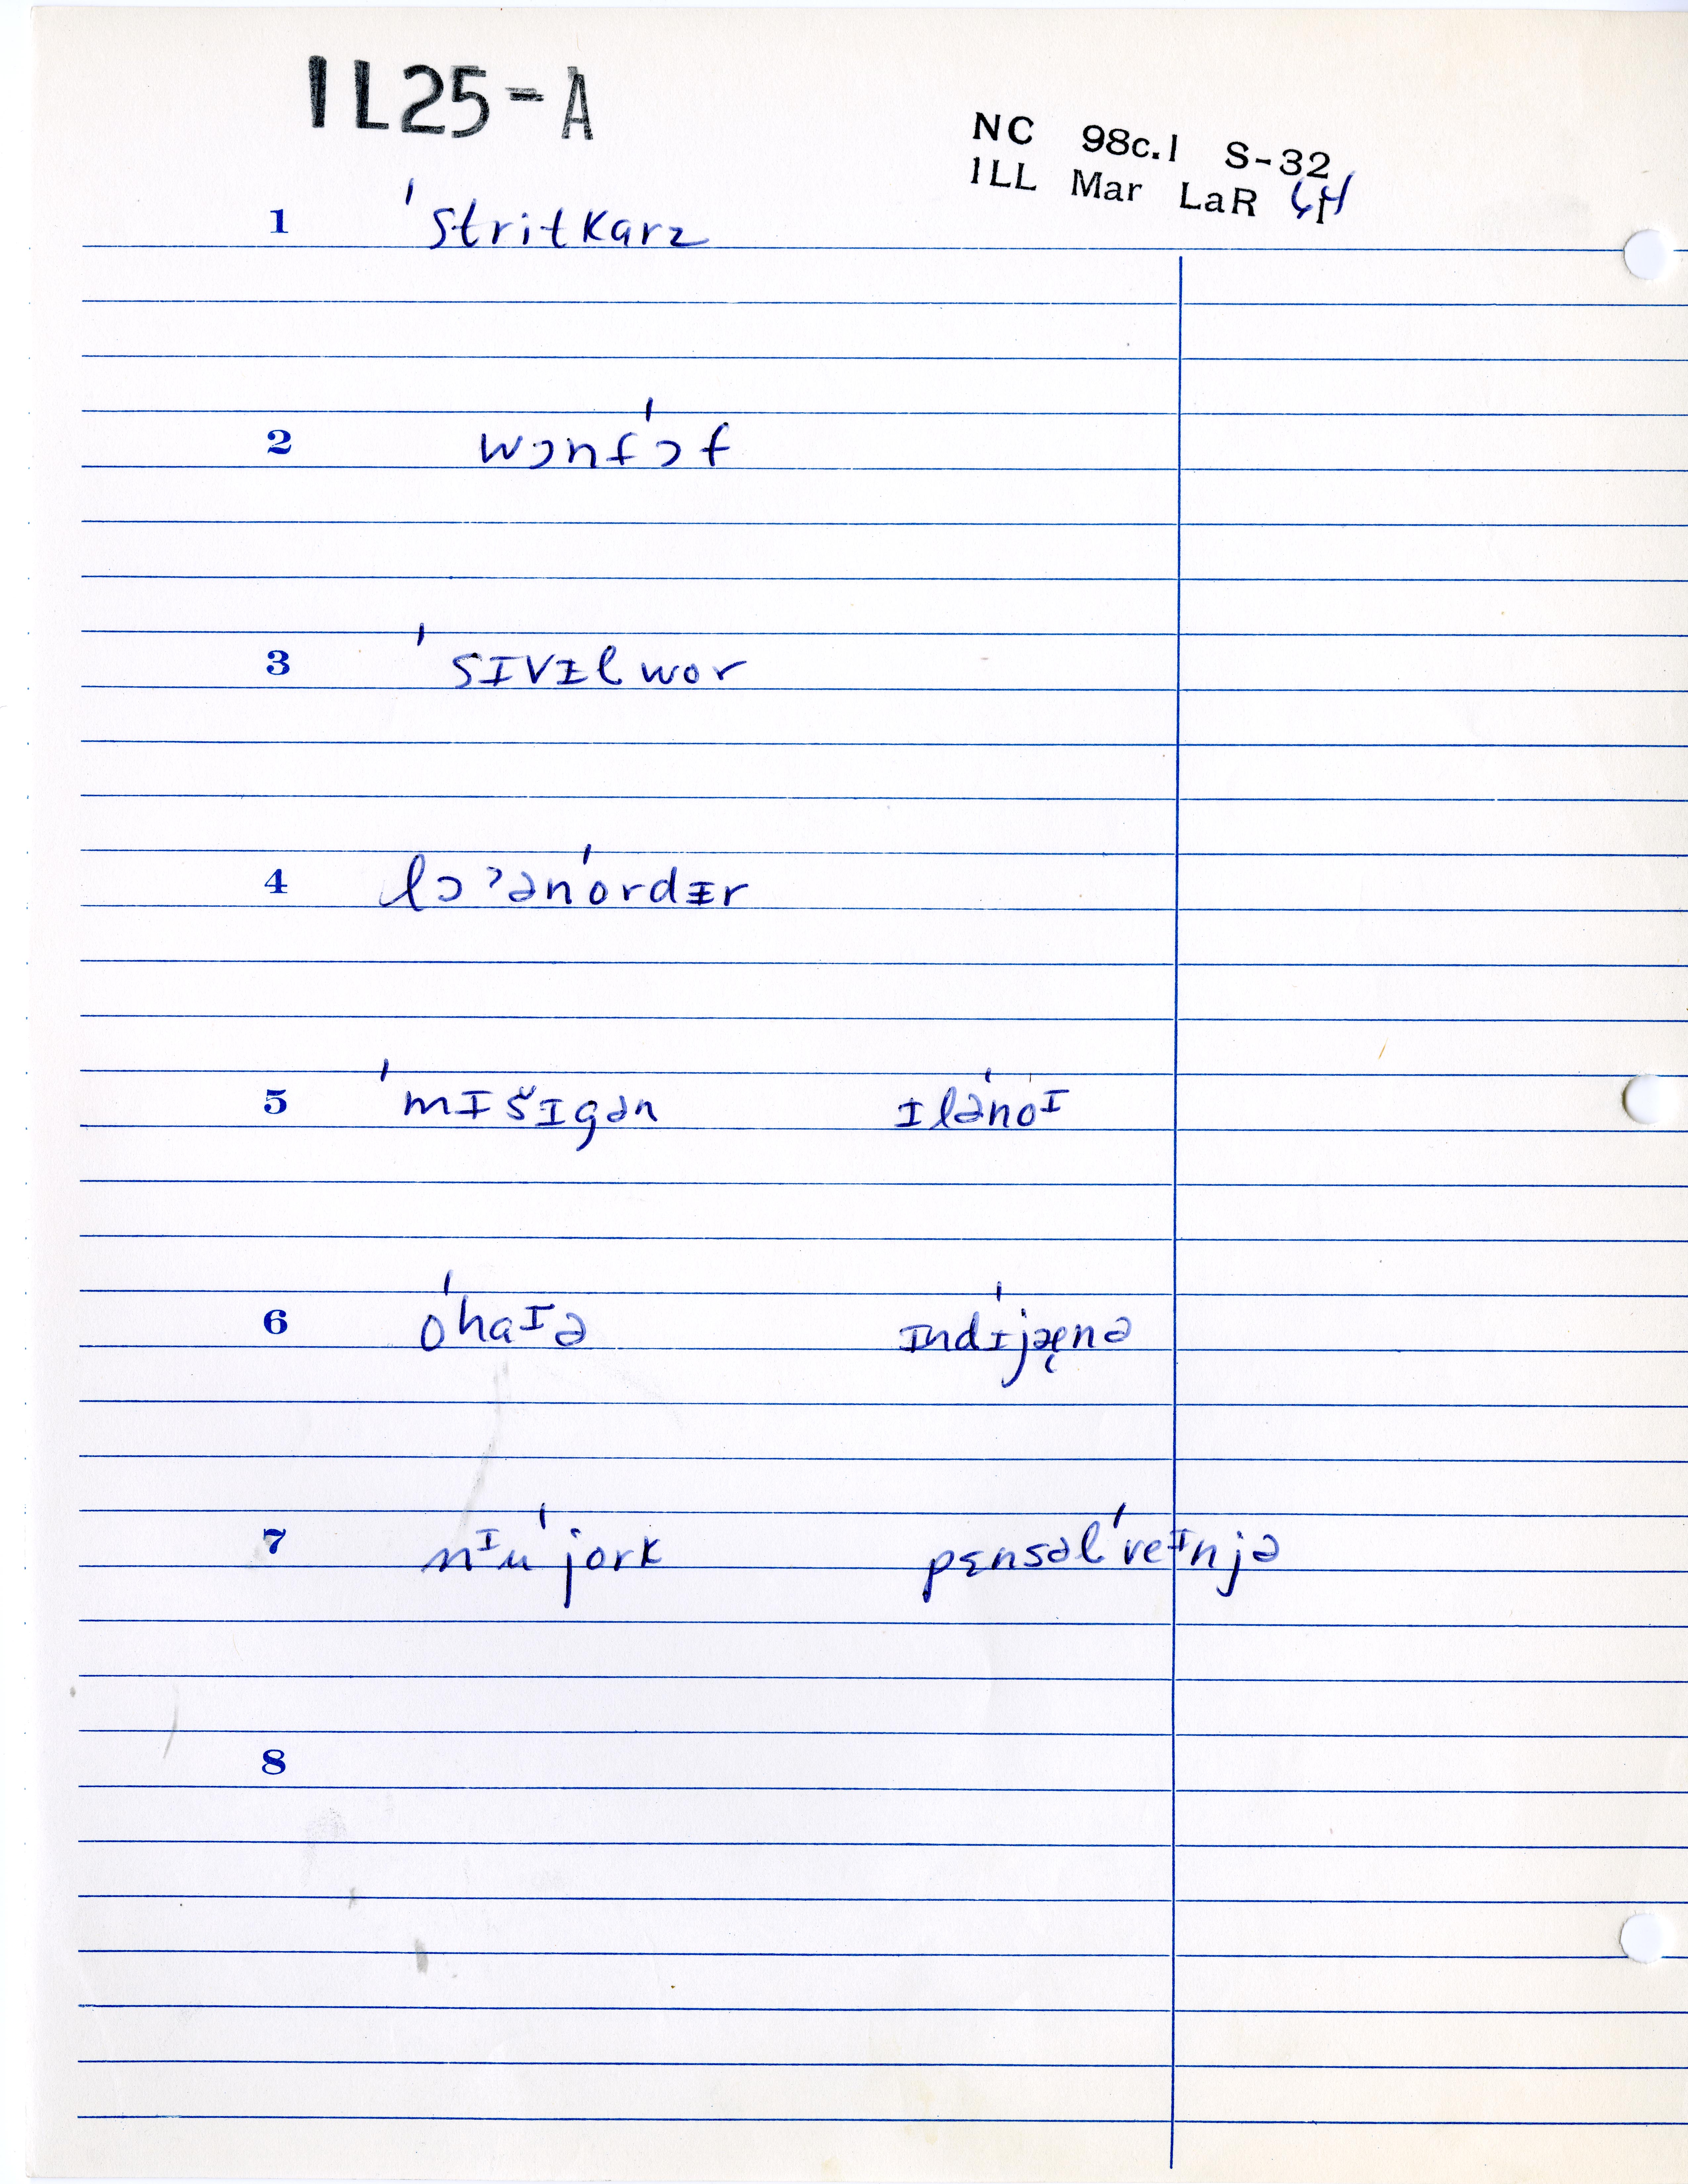 IL25-A
NC 98c.1 S-32
ILL Mar LaR
1 ˈstritkarz
2 wɔnfˈɔf
3 ˈsɪvɪ̵l wor
4 lɔˀənˈordɪ̵r
5 ˈmɪšɪgən ɪlənˈoᴵ
6 oˈhaᴵə ɪndɪˈjæ̨nə
7 nᴵuˈjork pɛnsəlˈveᴵnjə
8